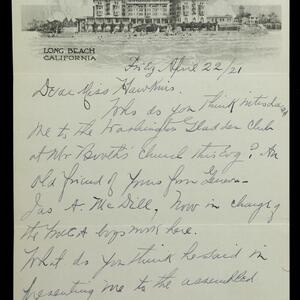 LONG BEACH
CALIFORNIA
Friday April 22/21
Dear Miss Hawkins.
Who do you think introduced
me to the Washington Gladden Club
at Mr Booth's Church this Evg? An
old friend of yours from Geneva
Jas A. McDill, now in charge of
the boys work here.
What do you think he said in
presenting me to the assembled